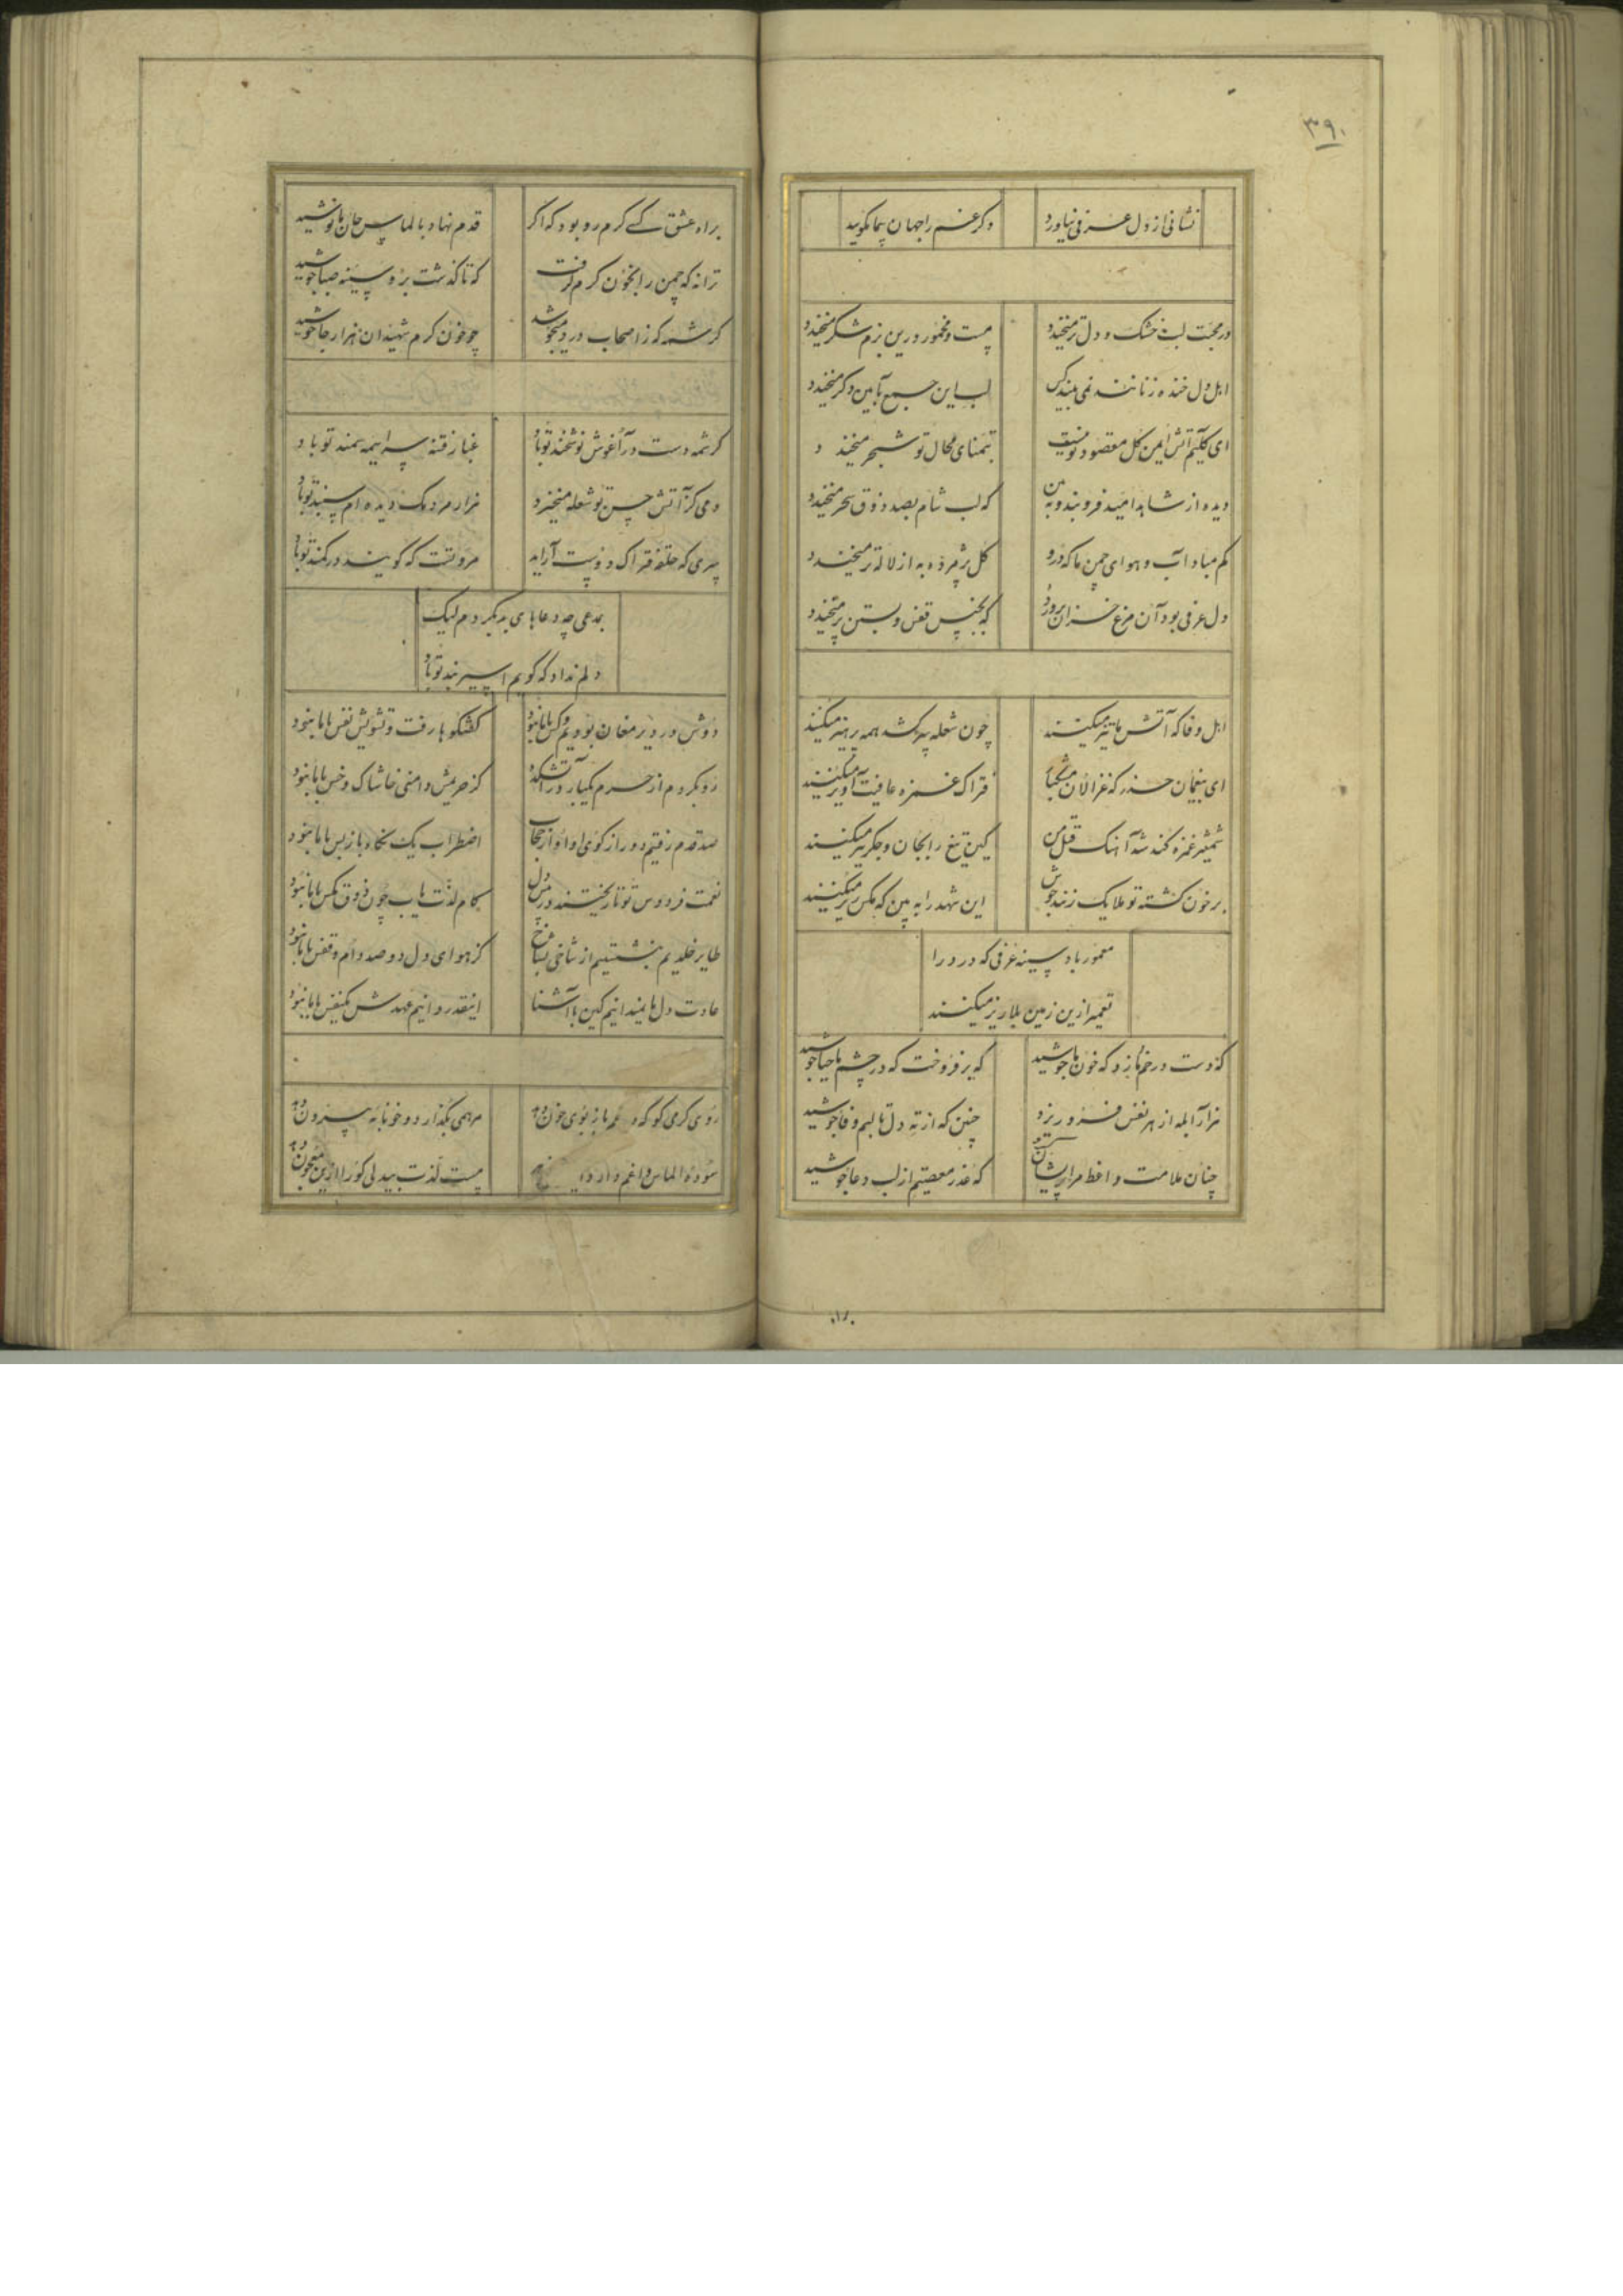 ۳۹۰
نشانی از دل عرفی نیاورد
دگر غم را جهان پیما مگویید
در محبت لب خشک و دل تر میخندد
مست و مخمور درین بزم شکر میخندد
اهل دل خنده زنانند نمی بیند کس
لب این جمع بآیین دگر میخندد
ای کلیم آتش ایمن گل مقصود تو نیست
بتمنای محال تو شجر میخندد
دیده از شاهد امید فرو بند و به بین
که لب شام بصد ذوق سحر میخندد
کم مباد آب و هوای چمن ما که درو
گل پژمرده به از لاله تر میخندد
دل عرفی بود آن مرغ خزان پرورد
که بکنج قفس و بستن پر میخندد
اهل وفا که آتش ما تیز میکنند
چون شعله سر کشد همه پرهیز میکنند
ای بیغمان حذر که غزالان
فتراک غمزه عافیت آویز میکنند
شمشیر غمزه کند شد آهنگ قتل من
کین تیغ را بجان و جگر تیز میکنند
بر خون کشته تو ملایک زنند جوش
این شهد را به بین که مگس ریز میکنند
معمور باد سینه عرفی که درد را
تعمیر ازین زمین بلا ریز میکنند
که دست در خم ما زد که خون ما جوشید
که بر فروخت که در چشم ما حیا جوشید
هزار آبله از هر نفس فرو ریزد
چنین که از ته دل تا لبم وفا جوشید
چنان ملامت واعظ مرا پریشان کرد
که عذر معصیتم از لب دعا جوشید
براه عشق کسی گرم رو بود که اگر
قدم نهاد بالماس جان ما نوشید
ترانه که چمن را بخون گرم گرفت
که تا گذشت برو سینه صبا جوشید
کرشمه که ز اصحاب درد میجوشد
چو خون گرم شهیدان هزار جا جوشید
کرشمه دست در آغوش نوشخند تو باد
غبار فتنه سراسیمه سمند تو باد
دمی کز آتش حسن تو شعله میخیزد
هزار مردمک دیده ام سپند تو باد
سری که حلقه فتراک دوست آراید
مروتست که گویند در کمند تو باد
بمدعی چه دعاهای بد بکردم لیک
دلم نداد که گویم اسیر بند تو باد
دوش در دیر مغان بودیم و کس با ما نبود
گفتگوها رفت و تشویش نفس با ما نبود
رو بکردم از حرم یکبار در آتشکده
کز حریمش دامنی خاشاک و خس با ما نبود
صد قدم رفتیم دور از کوی او
اضطراب یک نگاه باز پس با ما نبود
نعمت فردوس تو تا ریختند
کام لذت یاب چون ذوق مگس با ما نبود
طایر خلدیم ننشستیم از شاخی بشاخ
کز هوای دل دو صد دام و قفس با ما نبود
عادت دلها نمیدانیم کین ناآشنا
اینقدر دانیم عهدش یکنفس با ما نبود
روی گرمی کو که
مرهمی بگذارد و خونابه بیرون دهد
سوده الماس داغم
مست لذت بیدلی کو را ازین معجون دهد